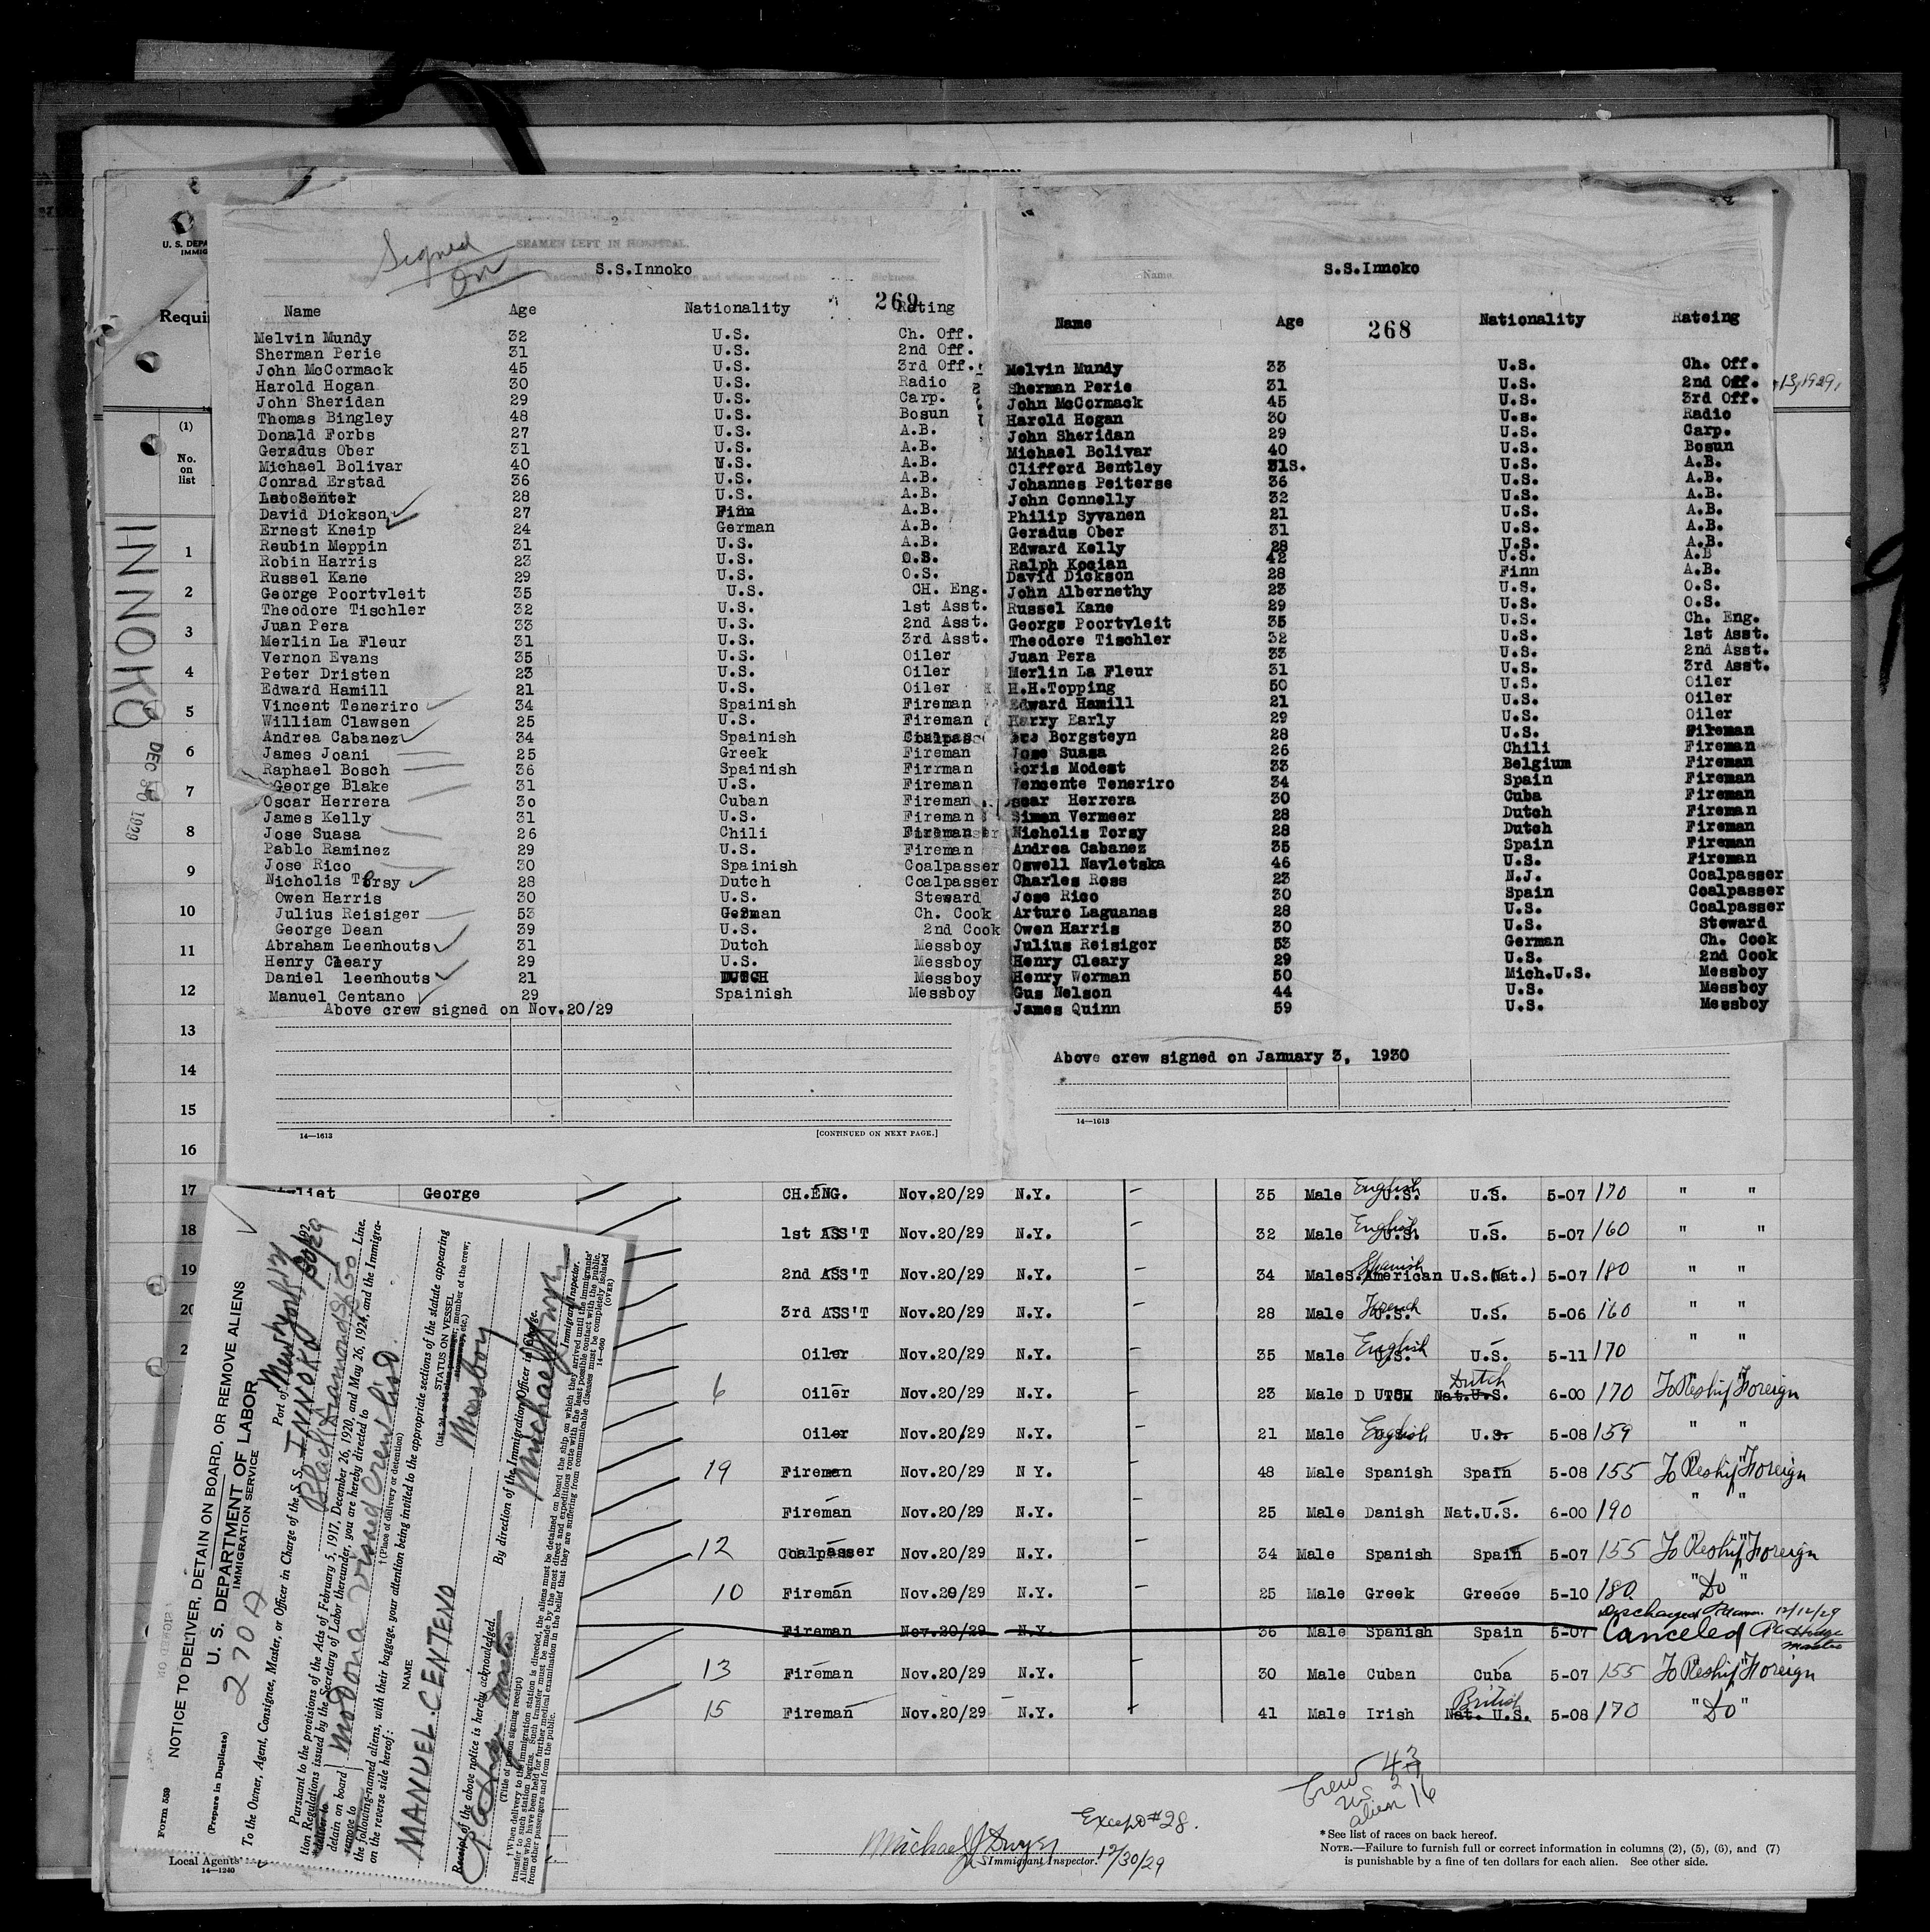 U. S. DEPA
IMMIG
Requi
(1)
No.
on
list
INNOKO
DEC 30 1929
1
2
3
4
5
6
7
8
9
10
11
12
13
14
15
16
17
18
19
20
2
2
SEAMEN LEFT IN HOSPITAL.
Signed
On
S.S.Innoko
269
Name Age Nationality Rating
Melvin Mundy 32 U.S. Ch. Off.
Sherman Perie 31 U.S. 2nd Off.
John McCormack 45 U.S. 3rd Off.
Harold Hogan 30 U.S. Radio
John Sheridan 29 U.S. Carp.
Thomas Bingley 48 U.S. Bosun
Donald Forbs 27 U.S. A.B.
Geradus Ober 31 U.S. A.B.
Michael Bolivar 40 U.S. A.B.
Conrad Erstad 36 U.S. A.B.
Senter 28 U.S. A.B.
David Dickson 27 Finn A.B.
Ernest Kneip 24 German A.B.
Reubin Meppin 31 U.S. A.B.
Robin Harris 23 U.S. O.S.
Russel Kane 29 U.S. O.S.
George Poortvleit 35 U.S. CH. Eng.
Theodore Tischler 32 U.S. 1st Asst.
Juan Pera 33 U.S. 2nd Asst.
Merlin La Fleur 31 U.S. 3rd Asst.
Vernon Evans 35 U.S. Oiler
Peter Dristen 23 U.S. Oiler
Edward Hamill 21 U.S. Oiler
Vincent Teneriro 34 Spainish Fireman
William Clawsen 25 U.S. Fireman
Andrea Cabanez 34 Spainish Coalpas
James Joani 25 Greek Fireman
Raphael Bosch 36 Spainish Firrman
George Blake 31 U.S. Fireman
Oscar Herrera 3o Cuban Fireman
James Kelly 31 U.S. Fireman
Jose Suasa 26 Chili Fireman
Pablo Raminez 29 U.S. Fireman
Jose Rico 30 Spainish Coalpasser
Nicholis Torsy 28 Dutch Coalpasser
Owen Harris 30 U.S. Steward
Julius Reisiger 53 German Ch. Cook
George Dean 39 U.S. 2nd Cook
Abraham Leenhouts 31 Dutch Messboy
Henry Cleary 29 U.S. Messboy
Daniel leenhouts 21 DUTCH Messboy
Manuel Centano 29 Spainish Messboy
Above crew signed on Nov.20/29
14—1613
[CONTINUED ON NEXT PAGE.]
Name.
S.S.Innoko
Name Age 268 Nationality Rateing
Melvin Mundy 33 U.S. Ch. Off.
Sherman Perie 31 U.S. 2nd Off.
John McCormack 45 U.S. 3rd Off.
Harold Hogan 30 U.S. Radio
John Sheridan 29 U.S. Carp.
Michael Bolivar 40 U.S. Bosun
Clifford Bentley U.S. A.B.
Johannes Peiterse 36 U.S. A.B.
John Connolly 32 U.S. A.B.
Philip Syvanen 21 U.S. A.B.
Geradus Ober 31 U.S. A.B.
Edward Kelly 28 U.S. A.B.
Ralph Kocian 42 U.S. A.B
David Dickson 28 Finn A.B.
John Albernethy 23 U.S. O.S.
Russel Kane 29 U.S. O.S.
George Poortvleit 35 U.S. Ch. Eng.
Theodore Tischler 32 U.S. 1st Asst.
Juan Pera 33 U.S. 2nd Asst.
Merlin La Fleur 31 U.S. 3rd Asst.
H.H.Topping 50 U.S. Oiler
Edward Hamill 21 U.S. Oiler
Harry Early 29 U.S. Oiler
Borgsteyn 28 U.S. Fireman
Jose Suasa 26 Chili Fireman
Goris Modest 33 Belgium Fireman
Vencente Teneriro 34 Spain Fireman
Oscar Herrera 30 Cuba Fireman
Simen Vermeer 28 Dutch Fireman
Nicholis Torsy 28 Dutch Fireman
Andrea Cabanez 35 Spain Fireman
Oswell Navletska 46 U.S. Fireman
Charles Ross 23 N.J. Coalpasser
Jose Rico 30 Spain Coalpasser
Arturo Laguanas 28 U.S. Coalpasser
Owen Harris 30 U.S. Steward
Julius Reisiger 53 German Ch. Cook
Henry Cleary 29 U.S. 2nd Cook
Henry Worman 50 Mich.U.S. Messboy
Gus Nelson 44 U.S. Messboy
James Quinn 59 U.S. Messboy
Above crew signed on January 3, 1930
14—1613
13,1929,
George CH.ENG. Nov.20/29 N.Y. 35 Male English U.S. U.S. 5-07 170 " "
1st ASS'T Nov.20/29 N.Y. 32 Male English U.S. U.S. 5-07 160 " "
2nd ASS'T Nov.20/29 N.Y. 34 Male Spanish S.American U.S.(Nat.) 5-07 180 " "
3rd ASS'T Nov.20/29 N.Y. 28 Male French U.S. U.S. 5-06 160 " "
Oiler Nov.20/29 N.Y. 35 Male English U.S. U.S. 5-11 170 " "
6 Oiler Nov.20/29 N.Y. 23 Male D UTCH Dutch Nat.U.S. 6-00 170 To Reship Foreign
Oiler Nov.20/29 N.Y. 21 Male English U.S. 5-08 159 " "
19 Fireman Nov.20/29 N Y. 48 Male Spanish Spain 5-08 155 To Reship Foreign
Fireman Nov.20/29 N.Y. 25 Male Danish Nat.U.S. 6-00 190 " "
12 Coalpasser Nov.20/29 N.Y. 34 Male Spanish Spain 5-07 155 To Reship Foreign
10 Fireman Nov.20/29 N.Y. 25 Male Greek Greece 5-10 180 " Do "
Fireman Nov.20/29 N.Y. 36 Male Spanish Spain 5-07 Discharged 12/12/29 Canceled Master
13 Fireman Nov.20/29 N.Y. 30 Male Cuban Cuba 5-07 155 To Reship Foreign
15 Fireman Nov.20/29 N.Y. 41 Male Irish British Nat. U.S. 5-08 170 " Do "
Crew 43
U.S. 27
alien 16
Except #28.
Michael J Dwyer
U S Immigrant Inspector. 12/30/29
*See list of races on back hereof.
NOTE.—Failure to furnish full or correct information in columns (2), (5), (6), and (7)
is punishable by a fine of ten dollars for each alien. See other side.
Local Agents
14—1240
Form 559
(Prepare in Duplicate)
NOTICE TO DELIVER, DETAIN ON BOARD, OR REMOVE ALIENS
U. S. DEPARTMENT OF LABOR
IMMIGRATION SERVICE
270A
Port of New York
12/30/29
To the Owner, Agent, Consignee, Master, or Officer in Charge of the S. S. INNOKO
Black Diamond SS Co Line.
Pursuant to the provisions of the Acts of February 5, 1917, December 26, 1920, and May 26, 1924, and the Immigra-
tion Regulations issued by the Secretary of Labor thereunder, you are hereby directed to
deliver to
detain on board
remove to
No Dona visaed Crew list
† (Place of delivery or detention)
the following-named aliens, with their baggage, your attention being invited to the appropriate sections of the statute appearing
on the reverse side hereof:
NAME
STATUS ON VESSEL
MANUEL CENTENO
Messboy
By direction of the Immigration Officer in Charge.
Michael J Dwyer
Immigrant Inspector.
Receipt of the above notice is hereby acknowledged.
Master
(Title of person signing receipt)
† When delivery to the immigration station is directed, the aliens must be detained on board the ship on which they arrived until the immigrants'
transfer to such station begins. Such transfer must be made by the most direct and expeditious route with the least possible contact with the public.
Aliens who have been held for further medical examination in the belief that they are suffering from communicable diseases must be completely isolated
from other passengers and from the public.
14—660
(OVER)